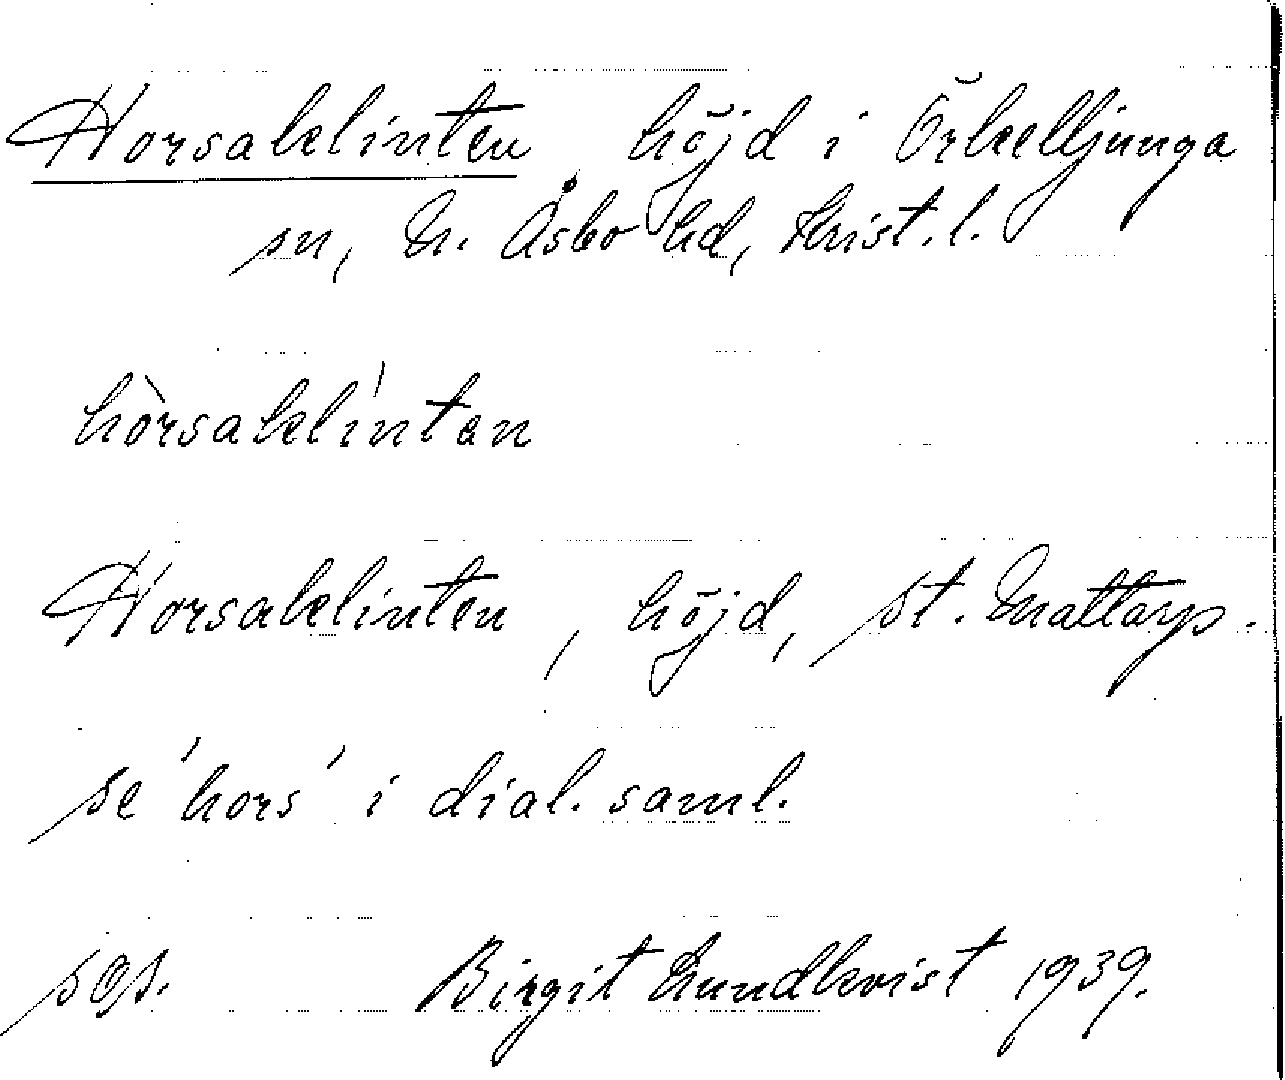 Horsaklinten, höjd i Örkelljunga
sn, N. Åsbo hd, Krist. l.
hòrsaklíntan
Horsaklinten, höjd, St. Mattarp.
se 'hors' i dial. saml.
Birgit Lundkvist 1939.